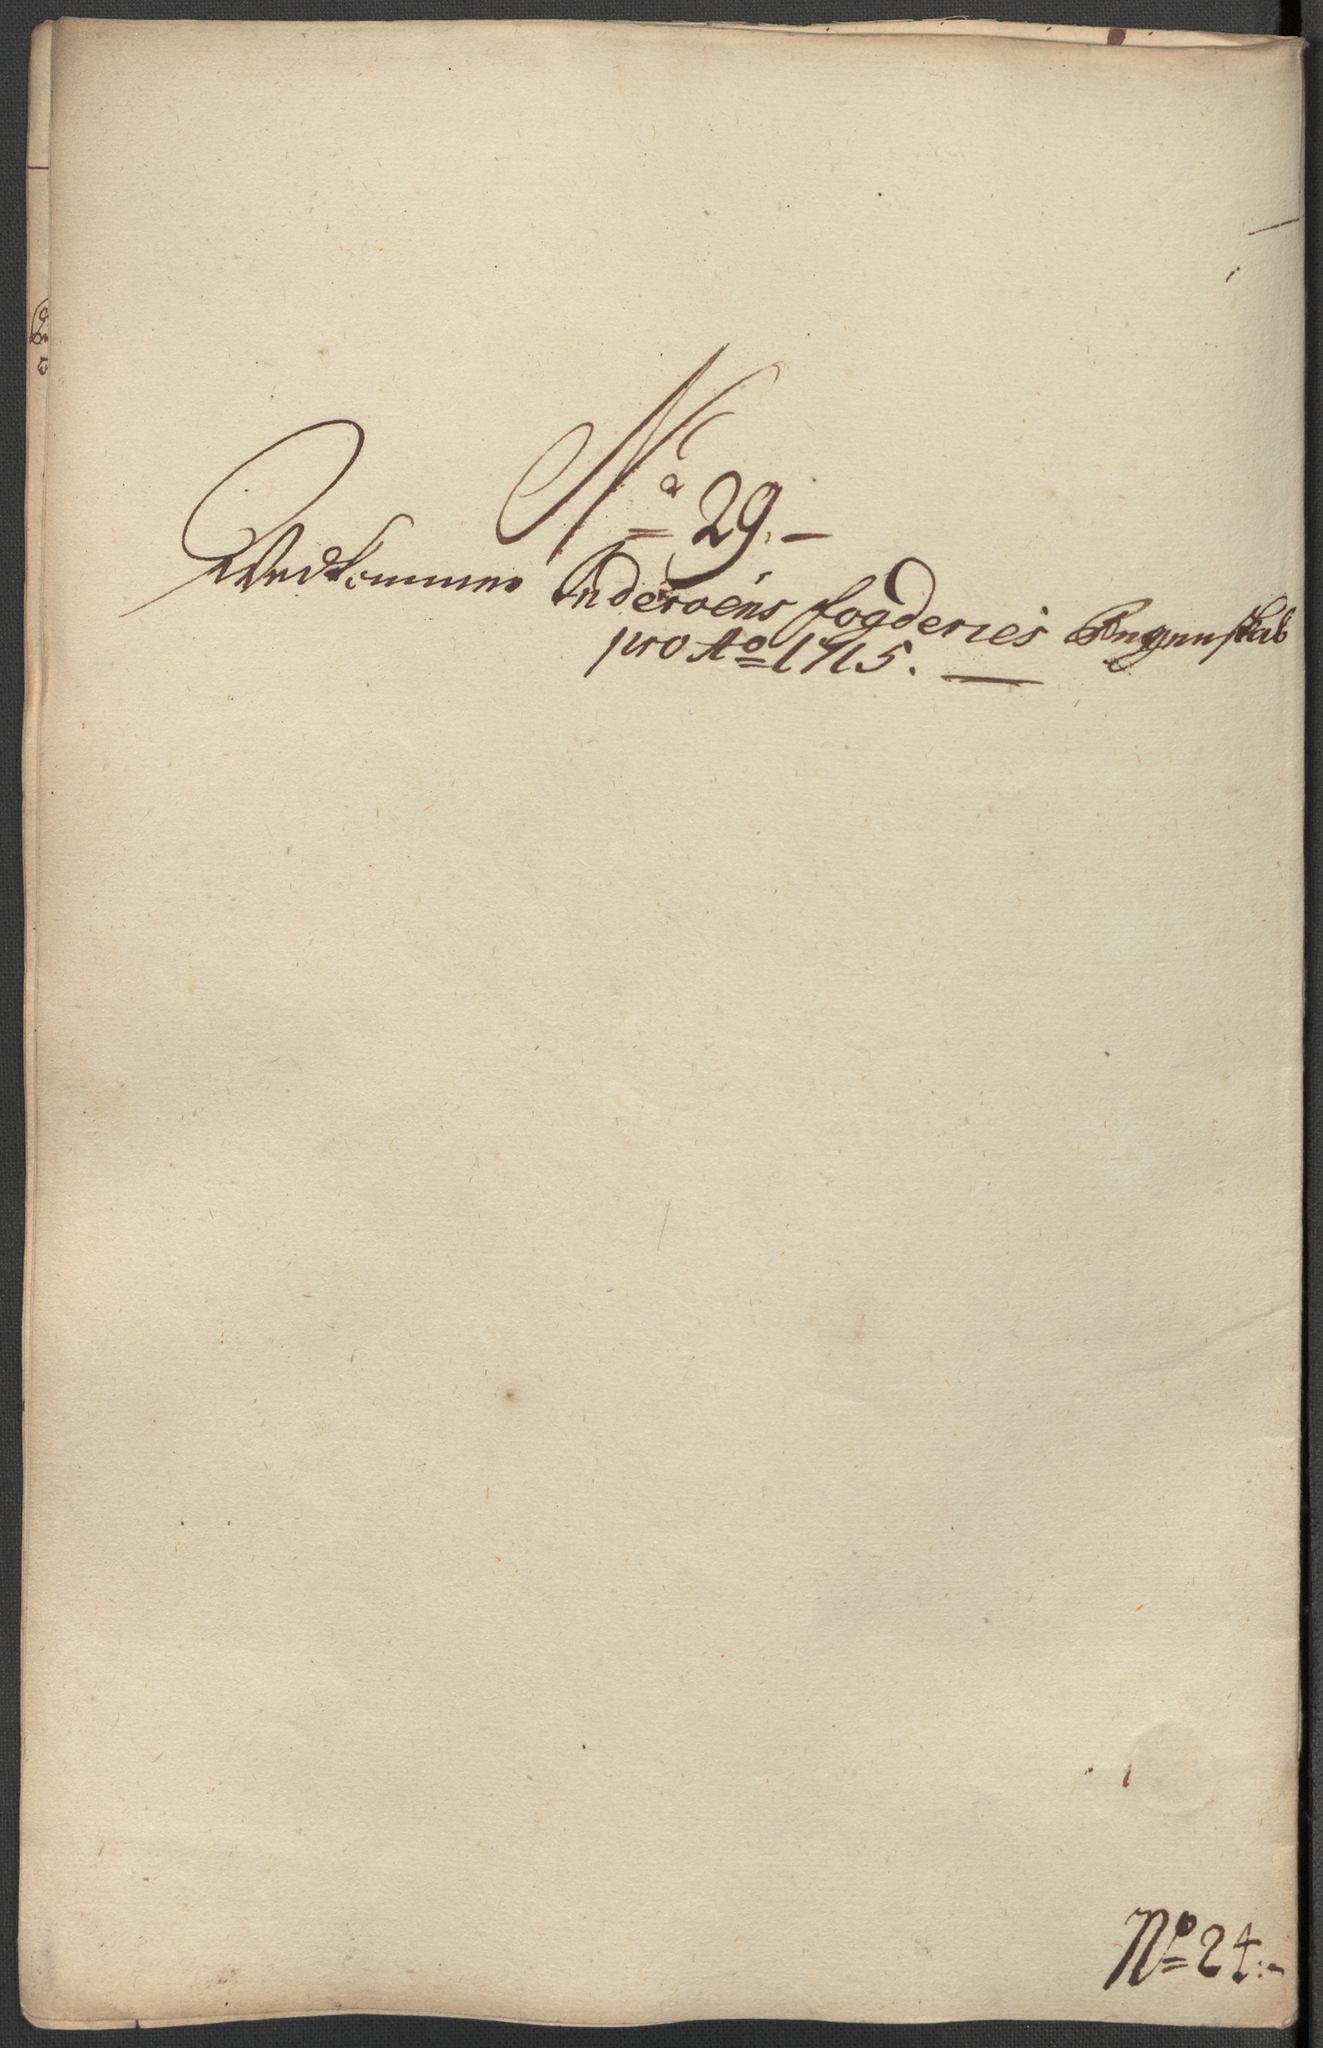 No 29.
Vedkommer Inderoens fogderies Regenskab
pro Ao 1715.
No 24.